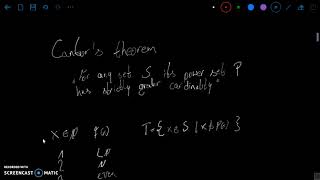 Cantor's theorem
"For any set S, its power set P
has strictly greater cardinality"
x ∈ S f(x) T = { x ∈ S | x ∉ f(x) }
1
2 N
EVEN
RECORDED WITH
SCREENCAST MATIC